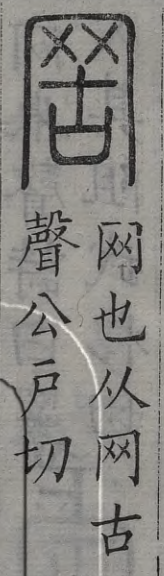 罟
网也从网古
聲公戶切